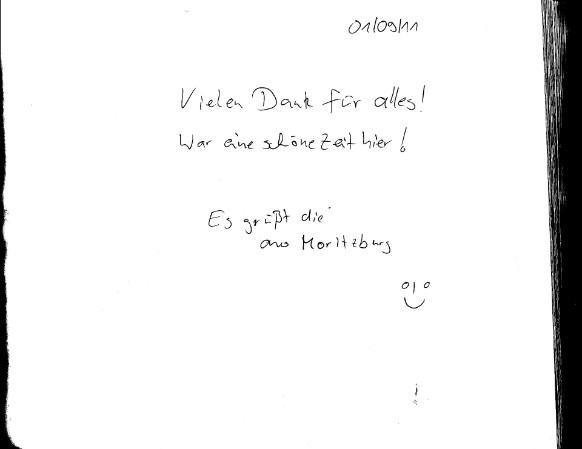 01/09/11
Vielen Dank für alles!
War eine schöne Zeit hier!
Es grüßt die
aus Moritzburg